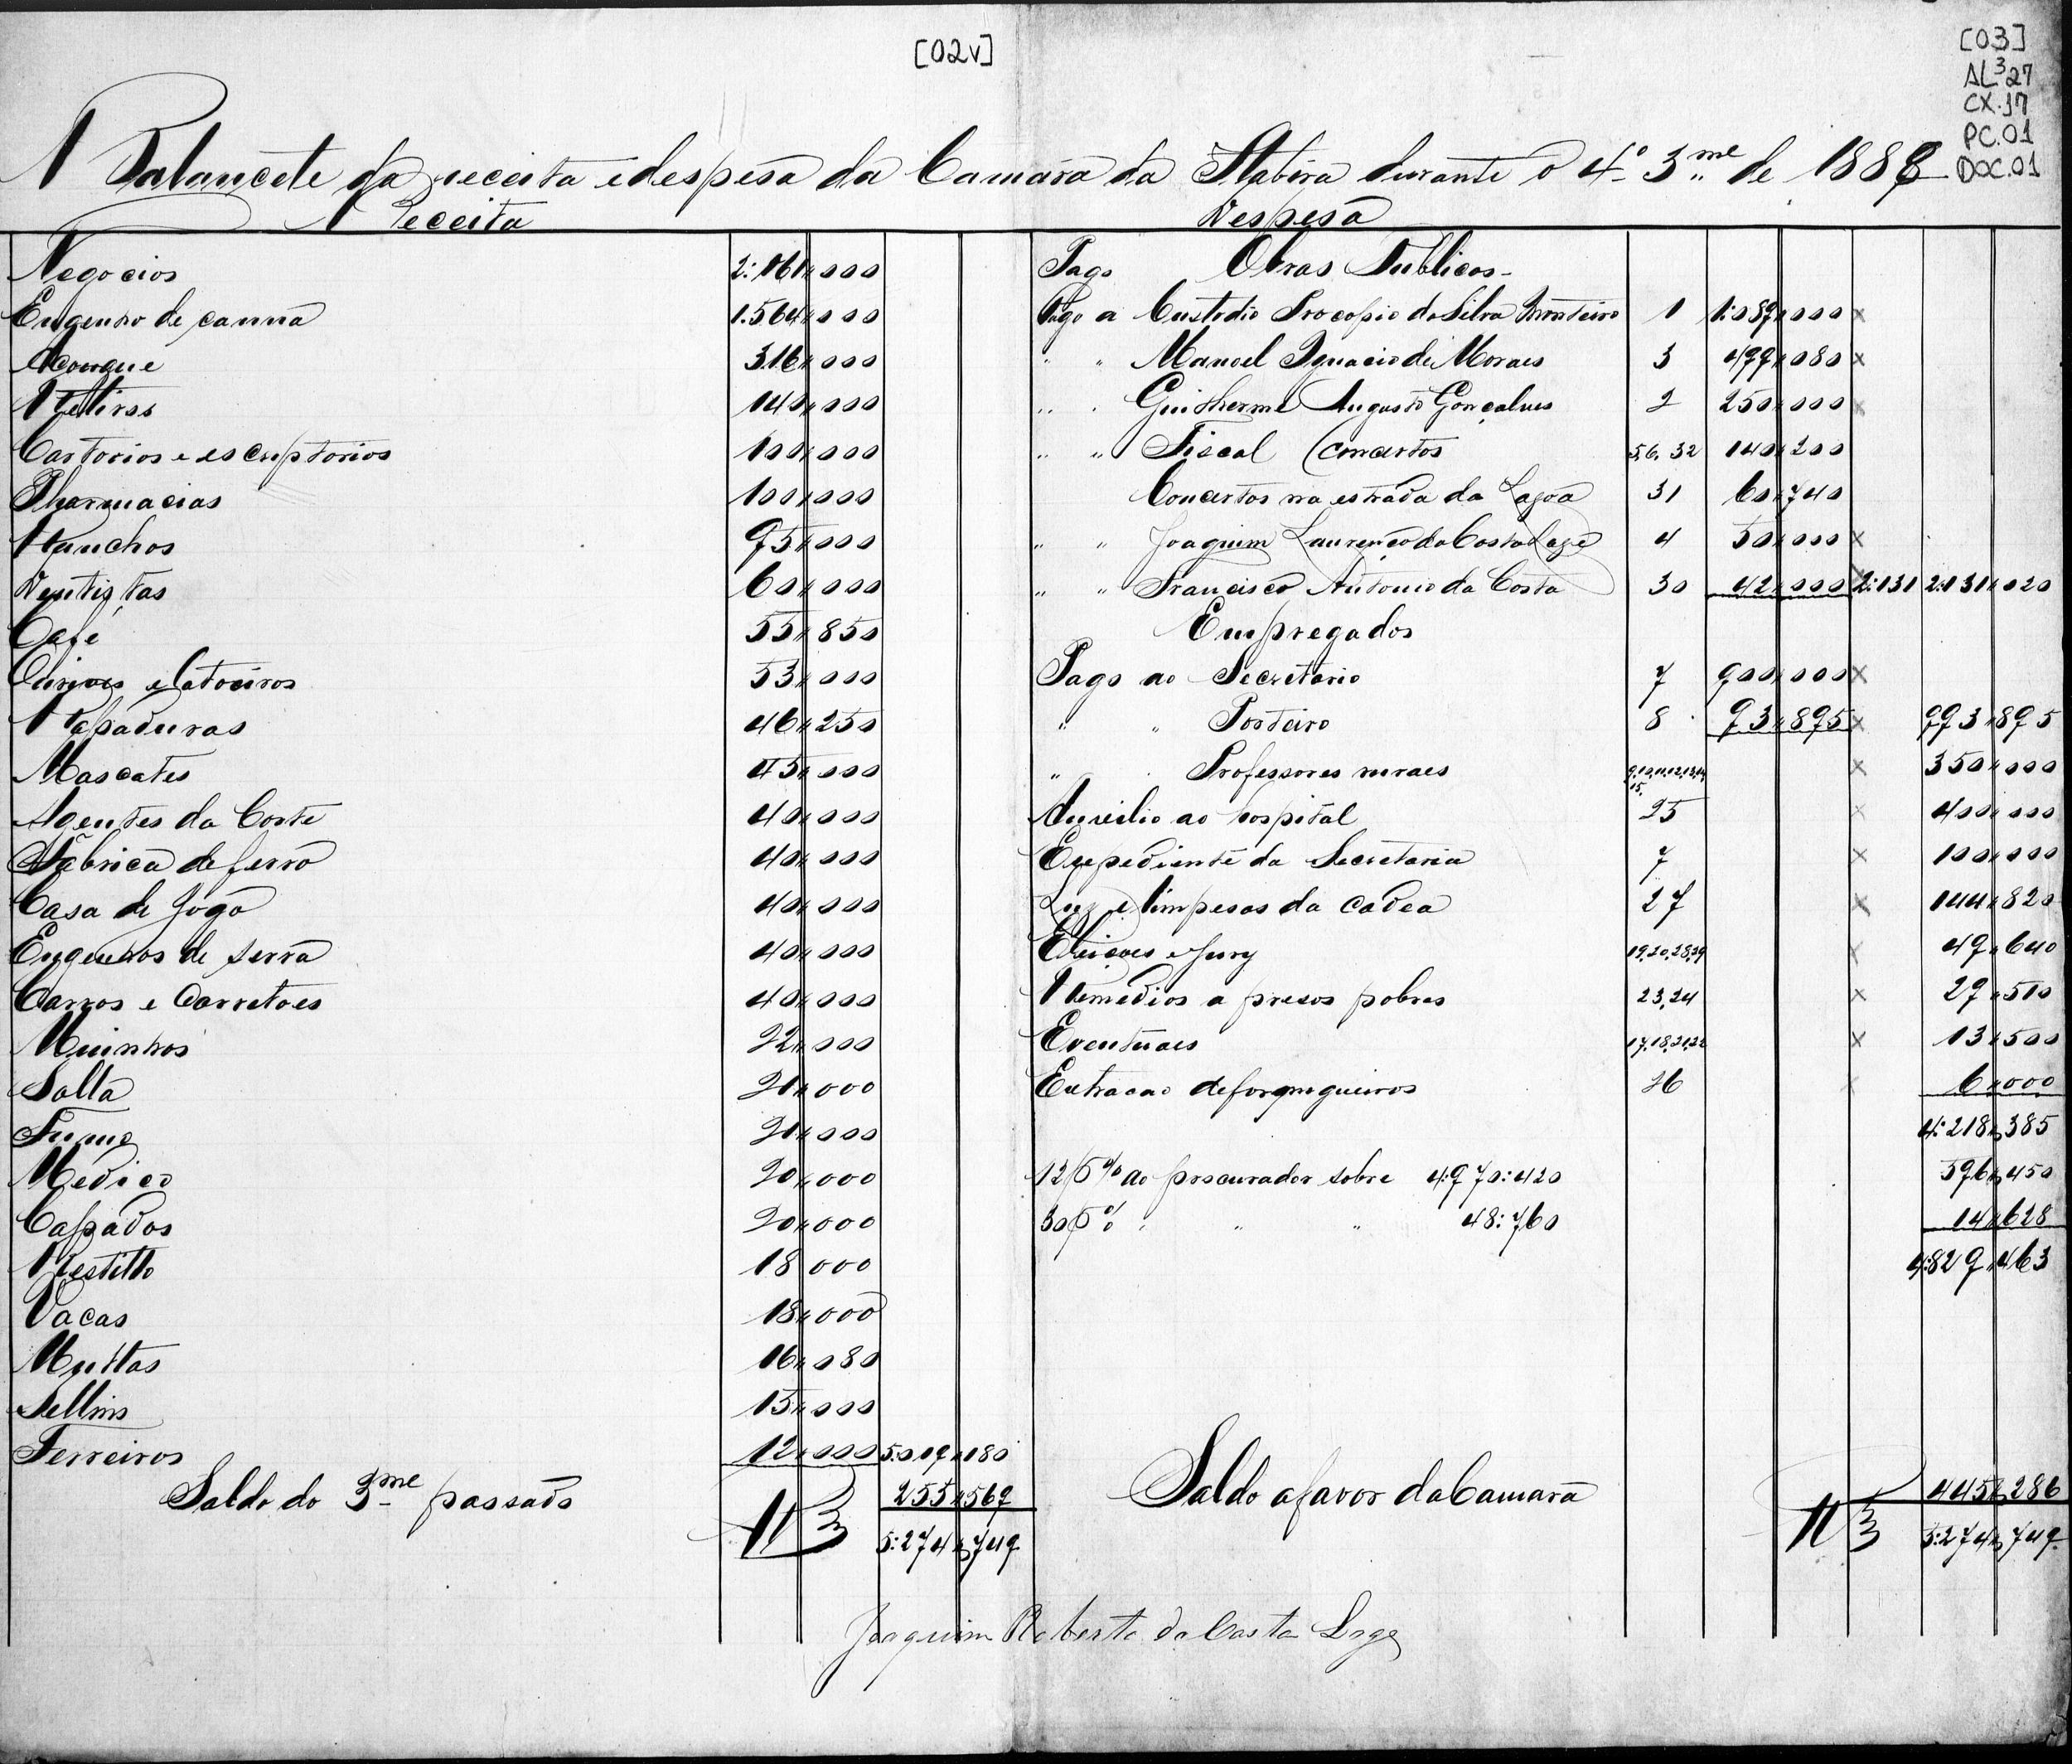 [02v]
[03]
AL³27
CX.17
PC.01
DOC.01
Balancete da receita e despesa da Camara da Itabira durante o 4º 3me de 1888
Receita
Negocios 2:161,000
Engenho de canna 1.564,000
Açougue 316,000
140,000
Cartorios e escriptorios 100,000
Pharmacias 100,000
Ranchos 95,000
Dentistas 60,000
Café 55,850
Ourives e latoeiros 53,000
Rapaduras 46,250
Mascates 45,000
Agentes da Corte 40,000
Fabrica de ferro 40,000
Casa de Jogo 40,000
Engenhos de serra 40,000
Carros e Carretoes 40,000
Muinhos 22,000
Solla 20,000
Fumo 20,000
Medico 20,000
Capados 20,000
Restillo 18 000
Vacas 18,000
Multas 16,080
Sellins 15,000
Ferreiros 12,000 5:019,180
Saldo do 3me passado 255,569
5:274,749
Despesa
Pago Obras Publicas
Pago a Custodio Procopio da Silva Monteiro 1 1:089,000 x
" " Manoel Ignacio de Moraes 3 499,080 x
" " Guilherme Augusto Gonçalves 2 250,000 x
" " Fiscal (Concertos 5,6,32 140,200
Concertos na estrada da Lagoa 31 60,740
" " Joaquim Lourenço da Costa Lage 4 50,000 x
" " Francisco Antonio da Costa 30 42,000 x 2:131 2:131,020
Empregados
Pago ao Secretario 7 900,000 x
" " Porteiro 8 93,895 x 993,895
" " Professores ruraes 9,10,11,12,13,14 15, x 350,000
Auxilio ao hospital 25 x 400,000
Expediente da Secretaria 7 x 100,000
Luz e limpesas da cadea 27 x 144,820
Eleiçoes e Jury 19,20,28,29 x 49,640
Remedios a presos pobres 23,24 x 29,510
Eventuaes 17,18,21,22 x 13,500
Extracao de formigueiros 26 x 6,000
4:218,385
12 % ao procurador sobre 4:970:420 596,450
30 % " " " 48:760 14,628
4:829,463
Saldo a favor da Camara 445,286
5:274,749
Joaquim Roberto da Costa Lage